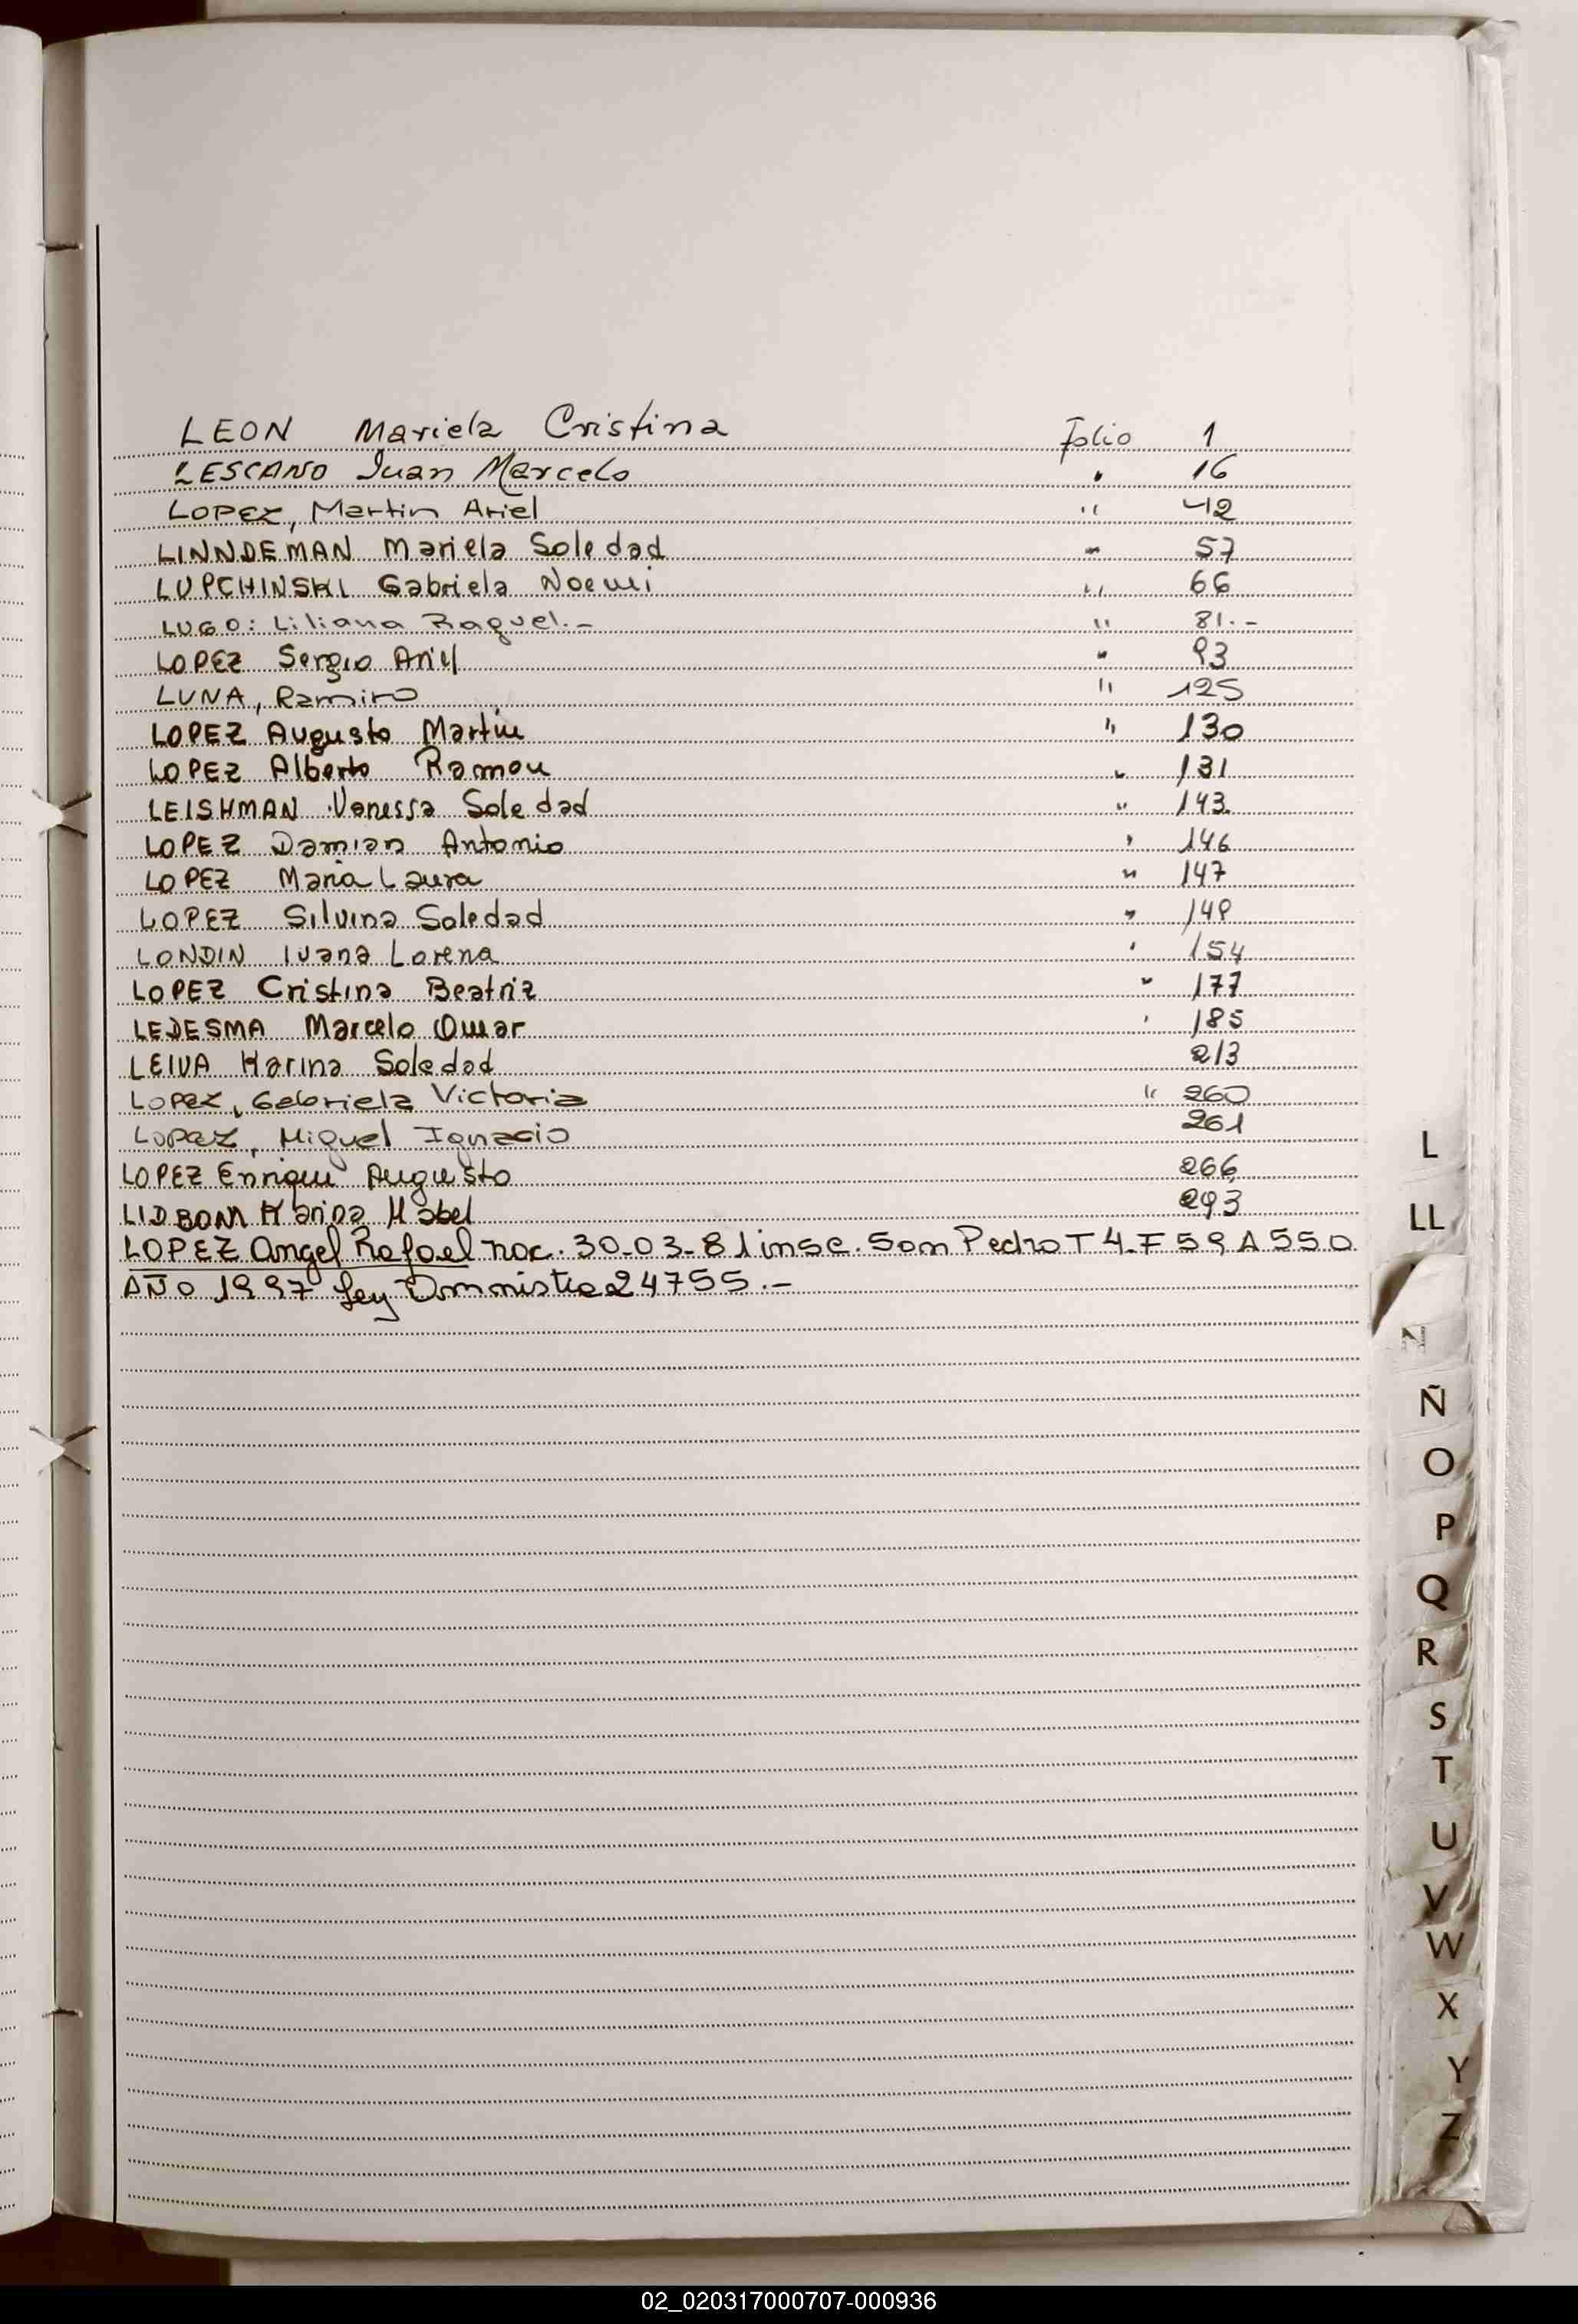 LEON Mariela Cristina Folio 1
LESCANO Juan Marcelo " 16
LOPEZ, Martin Ariel " 42
LINNDEMAN Mariela Soledad " 57
LUPCHINSKI Gabriela Noemi " 66
LUGO: Liliana Raquel.- " 81.-
LOPEZ Sergio Ariel " 93
LUNA, Ramiro " 125
LOPEZ Augusto Martin " 130
LOPEZ Alberto Ramon " 131
LEISHMAN Vanessa Soledad " 143
LOPEZ Damian Antonio " 146
LOPEZ Maria Laura " 147
LOPEZ Silvina Soledad "
LONDIN Ivana Lorena " 154
LOPEZ Cristina Beatriz " 177
LEDESMA Marcelo Omar " 185
LEIVA Karina Soledad 213
LOPEZ, Gabriela Victoria " 260
LOPEZ, Miguel Ignacio 261
LOPEZ Enrique Augusto 266
LIDBOM Karina Mabel 293
LOPEZ Angel Rafael nac. 30-03-81 insc. San Pedro T 4-F 59 A 550
AÑO 1997 Ley 24755.-
L
LL
N
Ñ
O
P
Q
R
S
T
U
V
W
X
Y
Z
02_020317000707-000936